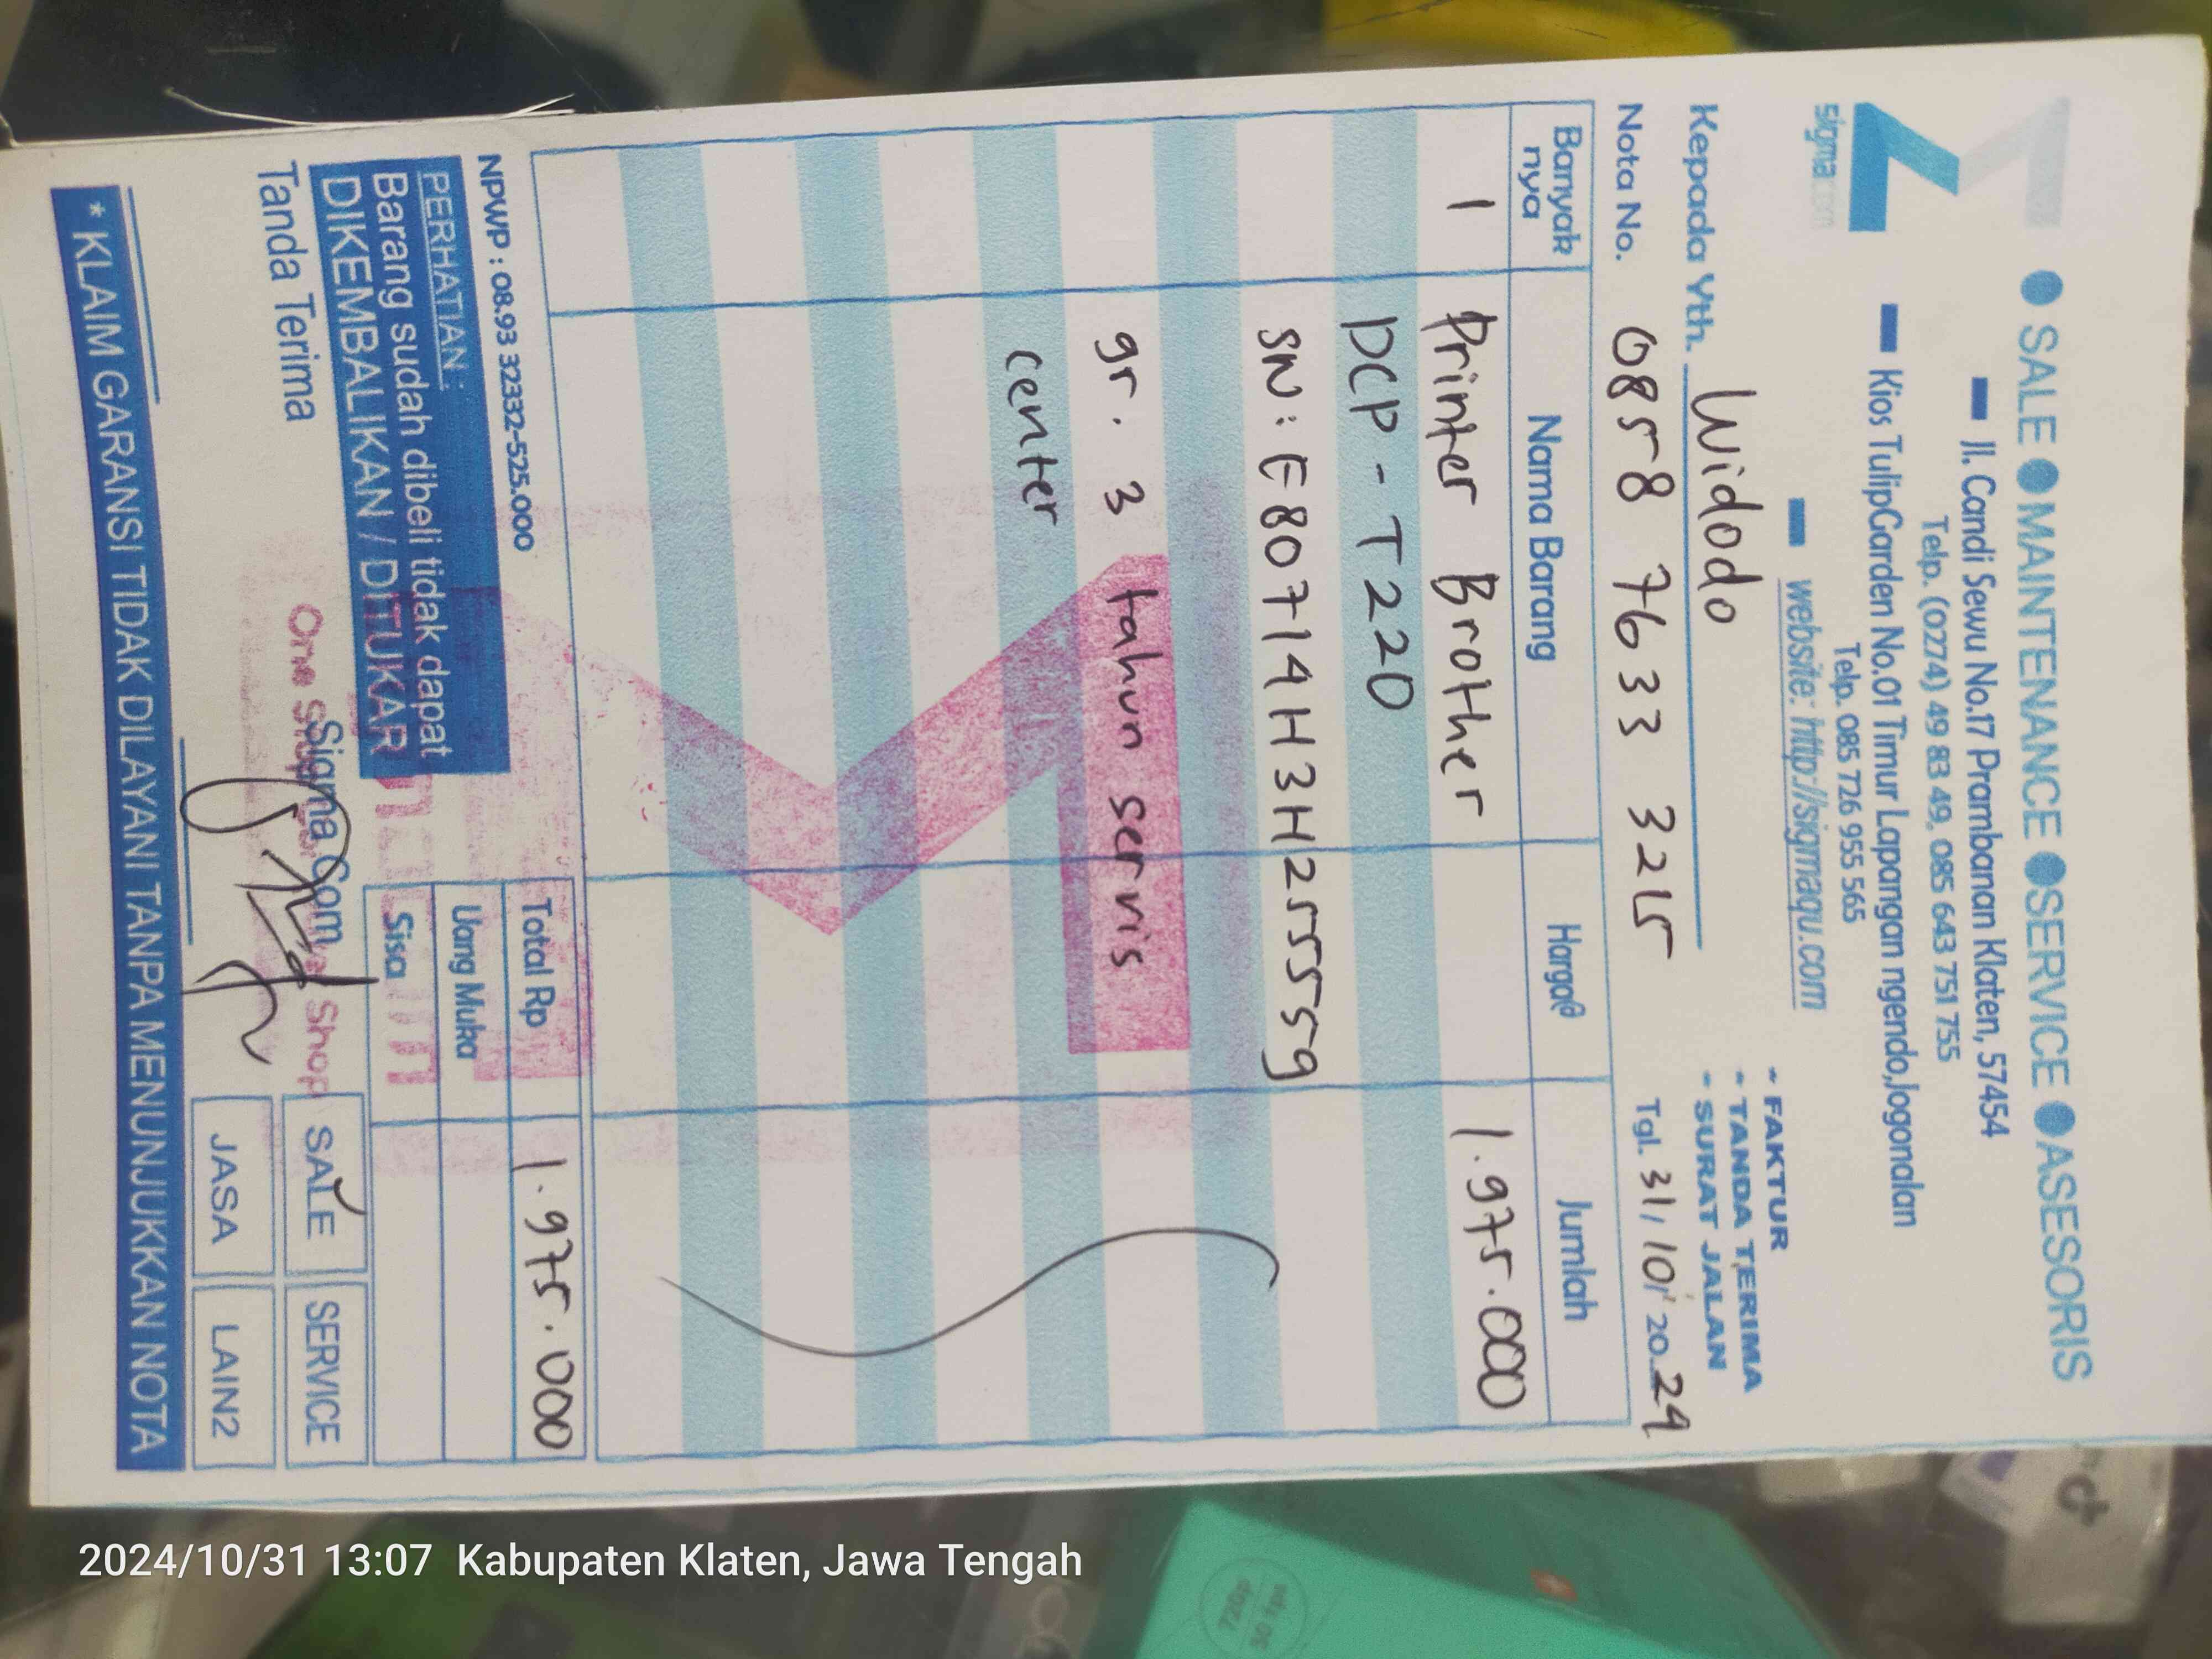 ● SALE ● MAINTENANCE ● SERVICE ● ASESORIS
Jl. Candi Sewu No.17 Prambanan Klaten, 57454
Telp. (0274) 49 83 49, 085 643 751 755
Kios TulipGarden No.01 Timur Lapangan ngendo,Jogonalan
Telp. 085 726 955 565
sigma.com
website: http://sigmaqu.com
- FAKTUR
- TANDA TERIMA
- SURAT JALAN
Kepada Yth. Widodo
Nota No. 0858 7633 3215
Tgl. 31/10/2024
Banyak nya Nama Barang Harga@ Jumlah
1 Printer Brother 1.975.000
DCP - T220
SN: E80714H3H255559
gr. 3 tahun servis
center
NPWP : 08.93 32332-525.000
Total Rp 1.975.000
Uang Muka
Sisa
PERHATIAN :
Barang sudah dibeli tidak dapat
DIKEMBALIKAN / DITUKAR
Tanda Terima
Sigma.Com
One Shop
SALE SERVICE
JASA LAIN2
* KLAIM GARANSI TIDAK DILAYANI TANPA MENUNJUKKAN NOTA
2024/10/31 13:07 Kabupaten Klaten, Jawa Tengah